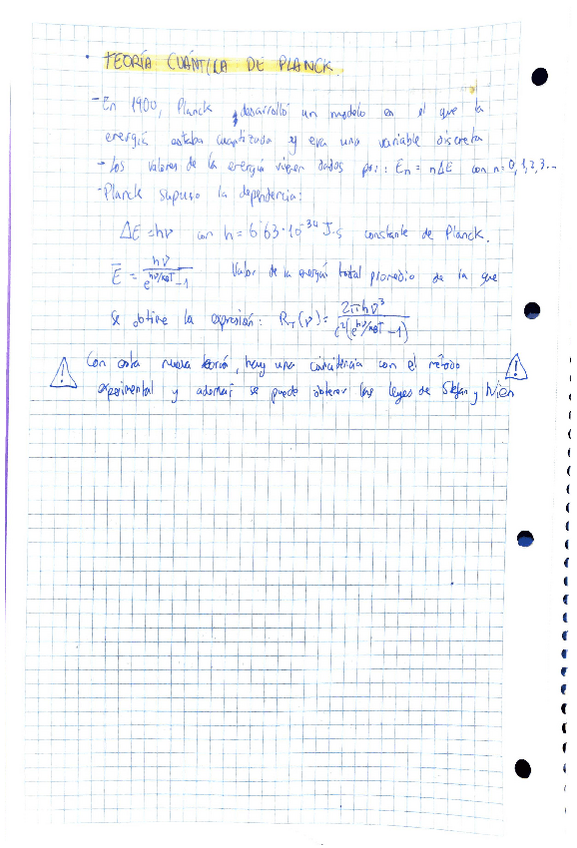 • TEORÍA CUÁNTICA DE PLANCK.
- En 1900, Planck desarrolló un modelo en el que la
energía estaba cuantizada y era una variable discreta
- Los valores de la energía vienen dados por: En = nΔE con n=0,1,2,3...
- Planck supuso la dependencia:
ΔE=hν con h=6'63·10^-34 J·s constante de Planck.
E̅ = hν / (e^(hν/k_BT) - 1) Valor de la energía total promedio de la que
se obtiene la expresión: R_T(ν) = 2πhν³ / (c²(e^(hν/k_BT) - 1))
⚠ Con esta nueva teoría, hay una coincidencia con el método ⚠
experimental y además se puede obtener las leyes de Stefan y Wien